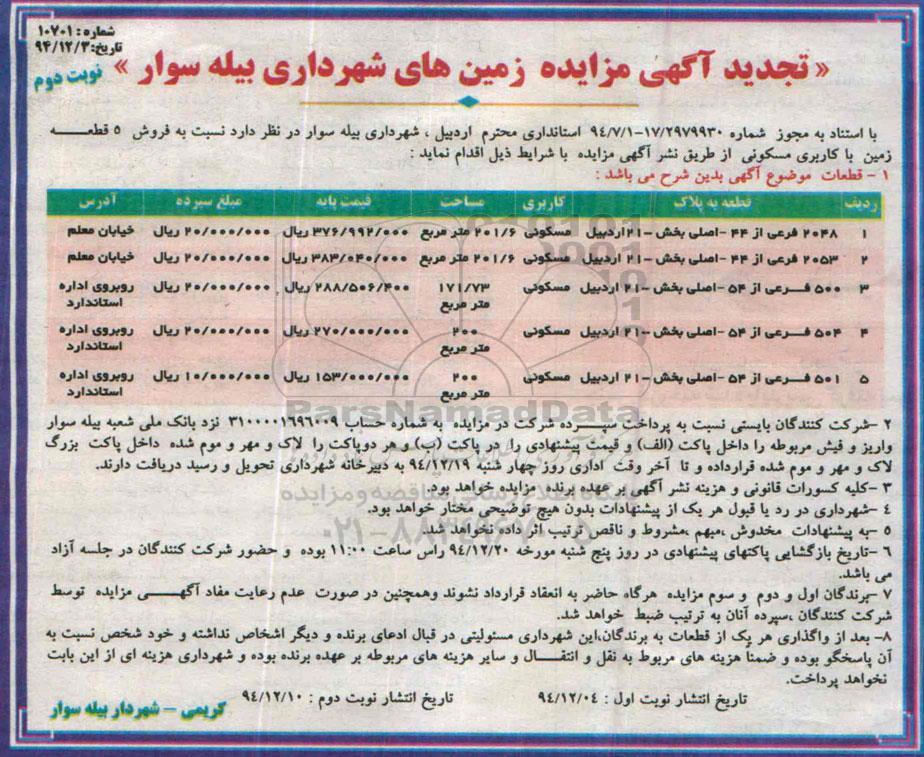 شماره : ۱۰۷۰۱
تاریخ: ۹۴/۱۲/۳
نوبت دوم
« تجدید آگهی مزایده زمین های شهرداری بیله سوار »
با استناد به مجوز شماره ۱۷/۲۹۷۹۹۳۰-۹۴/۷/۱ استانداری محترم اردبیل ، شهرداری بیله سوار در نظر دارد نسبت به فروش ۵ قطعه
زمین با کاربری مسکونی از طریق نشر آگهی مزایده با شرایط ذیل اقدام نماید :
۱ – قطعات موضوع آگهی بدین شرح می باشد :
ردیف قطعه به پلاک کاربری مساحت قیمت پایه مبلغ سپرده آدرس
۱ ۲۰۴۸ فرعی از ۴۴ -اصلی بخش -۲۱ اردبیل مسکونی ۲۰۱/۶ متر مربع ۳۷۶/۹۹۲/۰۰۰ ریال ۲۰/۰۰۰/۰۰۰ ریال خیابان معلم
۲ ۲۰۵۳ فرعی از ۴۴ -اصلی بخش -۲۱ اردبیل مسکونی ۲۰۱/۶ متر مربع ۳۸۳/۰۴۰/۰۰۰ ریال ۲۰/۰۰۰/۰۰۰ ریال خیابان معلم
۳ ۵۰۰ فرعی از ۵۴ -اصلی بخش -۲۱ اردبیل مسکونی ۱۷۱/۷۳ متر مربع ۲۸۸/۵۰۶/۴۰۰ ریال ۲۰/۰۰۰/۰۰۰ ریال روبروی اداره استاندارد
۴ ۵۰۴ فرعی از ۵۴ -اصلی بخش -۲۱ اردبیل مسکونی ۲۰۰ متر مربع ۲۷۰/۰۰۰/۰۰۰ ریال ۲۰/۰۰۰/۰۰۰ ریال روبروی اداره استاندارد
۵ ۵۰۱ فرعی از ۵۴ -اصلی بخش -۲۱ اردبیل مسکونی ۲۰۰ متر مربع ۱۵۳/۰۰۰/۰۰۰ ریال ۱۰/۰۰۰/۰۰۰ ریال روبروی اداره استاندارد
ParsNamadData
۲ -شرکت کنندگان بایستی نسبت به پرداخت سپرده شرکت در مزایده به شماره حساب ۳۱۰۰۰۰۱۶۹۶۰۰۹ نزد بانک ملی شعبه بیله سوار
واریز و فیش مربوطه را داخل پاکت (الف) و قیمت پیشنهادی را در پاکت (ب) و هر دوپاکت را لاک و مهر و موم شده داخل پاکت بزرگ
لاک و مهر و موم شده قرارداده و تا آخر وقت اداری روز چهار شنبه ۹۴/۱۲/۱۹ به دبیرخانه شهرداری تحویل و رسید دریافت دارند.
۳ -کلیه کسورات قانونی و هزینه نشر آگهی بر عهده برنده مزایده خواهد بود.
۴ -شهرداری در رد یا قبول هر یک از پیشنهادات بدون هیچ توضیحی مختار خواهد بود.
۵ -به پیشنهادات مخدوش ،مبهم ،مشروط و ناقص ترتیب اثر داده نخواهد شد.
۶ -تاریخ بازگشایی پاکتهای پیشنهادی در روز پنج شنبه مورخه ۹۴/۱۲/۲۰ راس ساعت ۱۱:۰۰ بوده و حضور شرکت کنندگان در جلسه آزاد
می باشد.
۷ -برندگان اول و دوم و سوم مزایده هرگاه حاضر به انعقاد قرارداد نشوند وهمچنین در صورت عدم رعایت مفاد آگهی مزایده توسط
شرکت کنندگان ،سپرده آنان به ترتیب ضبط خواهد شد.
۸- بعد از واگذاری هر یک از قطعات به برندگان،این شهرداری مسئولیتی در قبال ادعای برنده و دیگر اشخاص نداشته و خود شخص نسبت به
آن پاسخگو بوده و ضمناً هزینه های مربوط به نقل و انتقال و سایر هزینه های مربوطه بر عهده برنده بوده و شهرداری هزینه ای از این بابت
نخواهد پرداخت.
تاریخ انتشار نوبت اول : ۹۴/۱۲/۰۴ تاریخ انتشار نوبت دوم : ۹۴/۱۲/۱۰
کریمی – شهردار بیله سوار